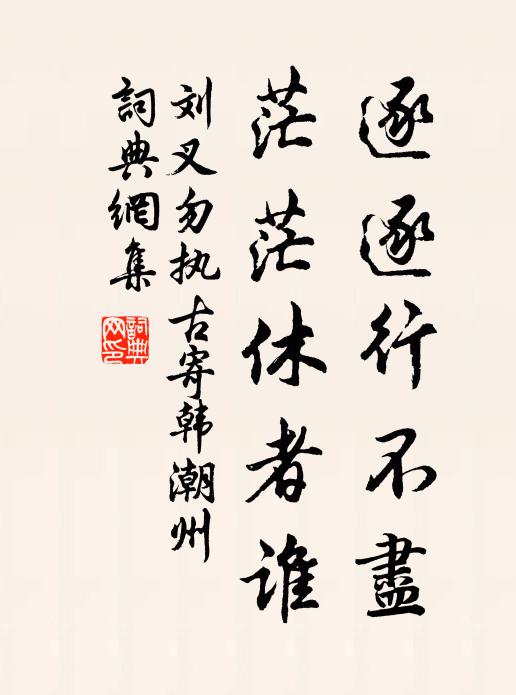 逐逐行不盡
茫茫休者谁
刘叉勿执古寄韩潮州
詞典網集
詞典
网印